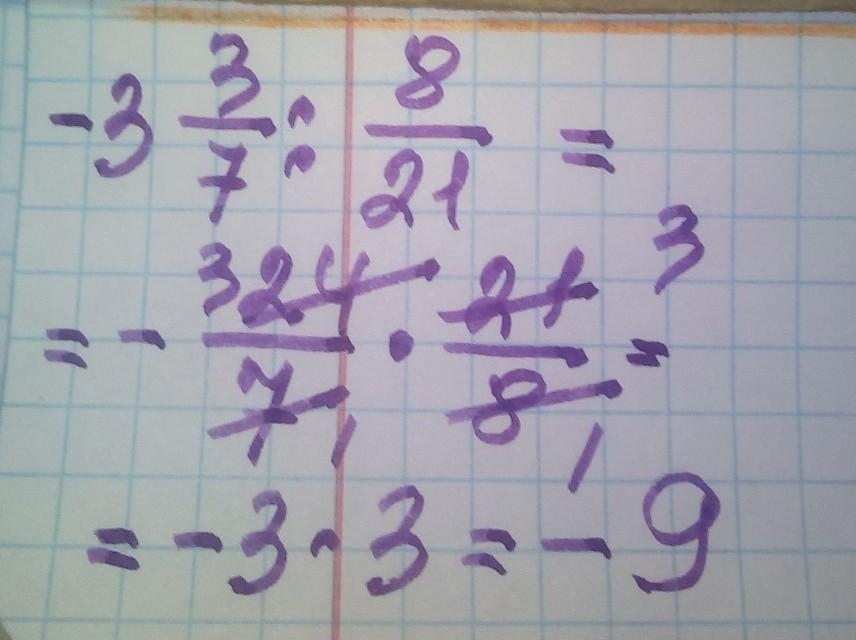 -3 3/7 : 8/21 =
= - 3 24/7 1 · 21/8 1 3 =
= -3 · 3 = -9